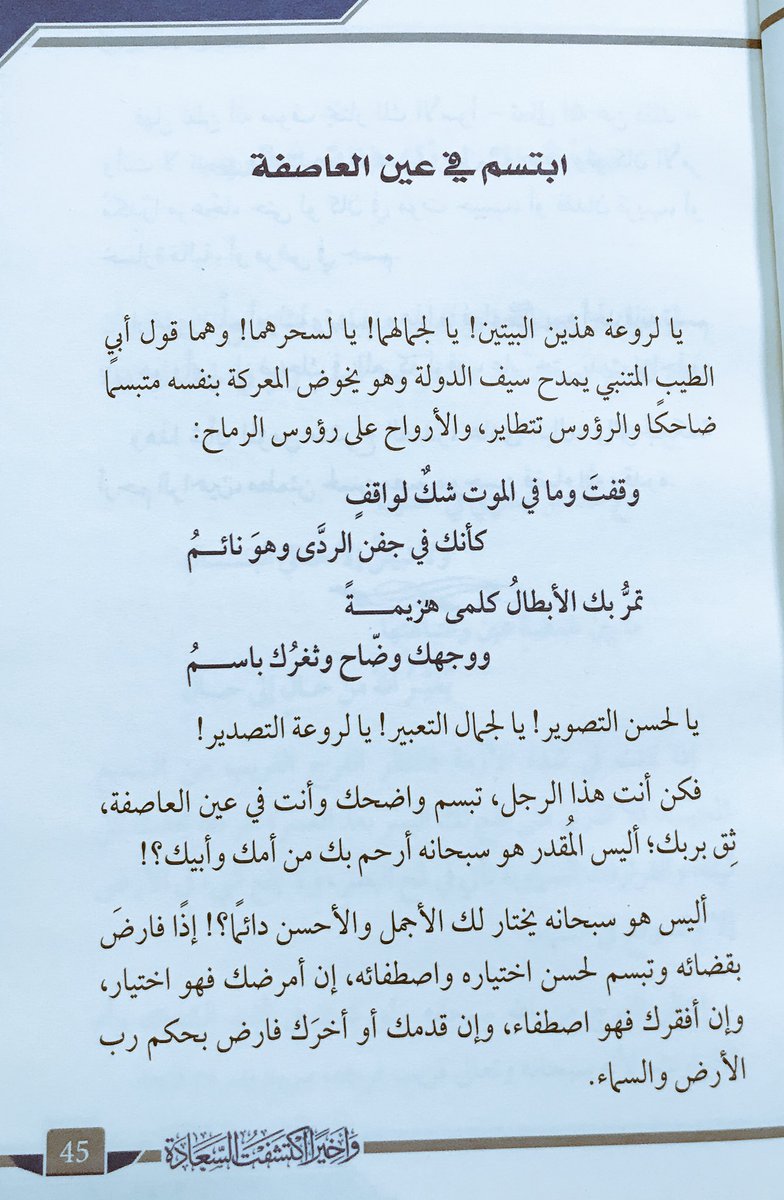 ابتسم في عين العاصفة
يا لروعة هذين البيتين! يا لجمالهما! يا لسحرهما! وهما قول أبي
الطيب المتنبي يمدح سيف الدولة وهو يخوض المعركة بنفسه متبسمًا
ضاحكًا والرؤوس تتطاير، والأرواح على رؤوس الرماح:
وقفتَ وما في الموت شكٌ لواقفٍ
كأنك في جفن الردَى وهوَ نائـــمُ
تمرُّ بك الأبطالُ كلمى هزيمـــــةً
ووجهك وضّاح وثغرُك باســــمُ
يا لحسن التصوير! يا لجمال التعبير! يا لروعة التصدير!
فكن أنت هذا الرجل، تبسم واضحك وأنت في عين العاصفة،
ثِق بربك؛ أليس المُقدر هو سبحانه أرحم بك من أمك وأبيك؟!
أليس هو سبحانه يختار لك الأجمل والأحسن دائمًا؟! إذًا فارضَ
بقضائه وتبسم لحسن اختياره واصطفائه، إن أمرضك فهو اختيار،
وإن أفقرك فهو اصطفاء، وإن قدمك أو أخرَك فارض بحكم رب
الأرض والسماء.
وَأَخِيرًا اكْتَشَفْتُ السَّعَادَة
45